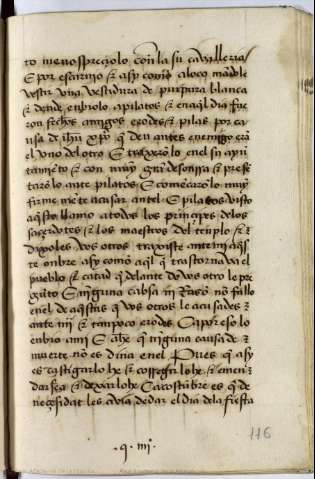 to menospreçiolo con la su cavalleria
E por escarnio & asy como a loco mandole
vestir una vestidura de purpura blanca
& dende enbiolo a pilatos & en aql dia fue
ron fechos amigos erodes & pilas por ca
usa de ihu xpo que den antes enemigo era
el uno del otro E traxeronlo en el su apri
tamiento & con muy grant desonrra & prese
taronlo ante pilatos E començaronlo muy
firme mente acusar antel E pilatos visto
aqsto llamo a todos los prinçipes de los
saçerdotes & los maestros del templo &
dixoles vos otros traxiste ante mi aqs
te onbre asy como aql q trastorna va el
pueblo & catad q delante de vos otro le pre
gunto E ninguna cabsa nin Rason no fallo
en el de aqstas q vos otros le acusades &
ante mi & tanpoco erodes Ca por eso lo
enbio a mi E ahe q ninguna causa de
muerte no es dina en el Pues q asy
es castigarlo he & corregirlo he & emen
darsea & dexarlo he Ca costunbre es q de
neçesidat les avia de dar el dia de la fiesta
116
. q . iiij .